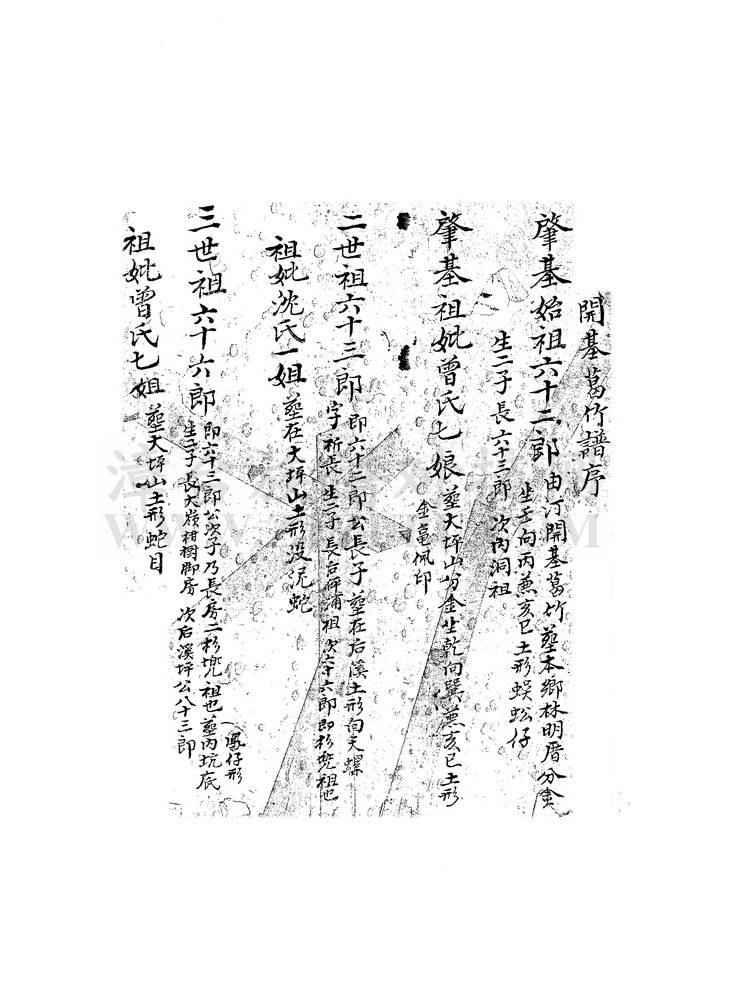 開基葛竹譜序
肇基始祖六十二郎由汀開基葛竹塟本鄉林明厝分金
坐壬向丙兼亥巳土形蜈蚣仔
生二子長六十三郎 次內洞祖
肇基祖妣曾氏七娘塟大坪山分金坐乾向巽兼亥巳土形
金龜佩印
二世祖六十三郎即六十二郎公長子塟在后溪土形向天螺
字祈長生二子長后坪浦祖次六十六郎即杉兠祖也
祖妣沈氏一姐塟在大坪山土形没泥蛇
三世祖六十六郎即六十三郎公次子乃長房二杉兠祖也塟內坑底
鳳仔形
生二子長大嶺柑樹脚房 次后溪坪公八十三郎
祖妣曾氏七姐塟大坪山土形蛇目